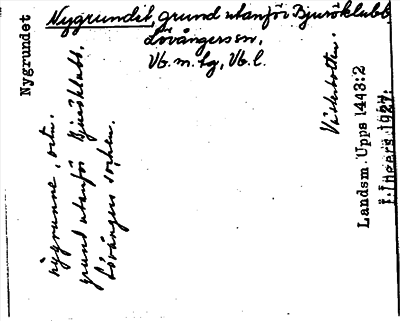 Nygrundet
Nygrundit, grund utanför Bjuröklubb,
Lövångers sn,
Vb. m. hg, Vb. l.
nygrunne, ortn.
grund utanför Bjuröklubb.
Lövångers socken.
Västerbotten.
Landsm. Upps 1443:2
I. Ingers 1927.